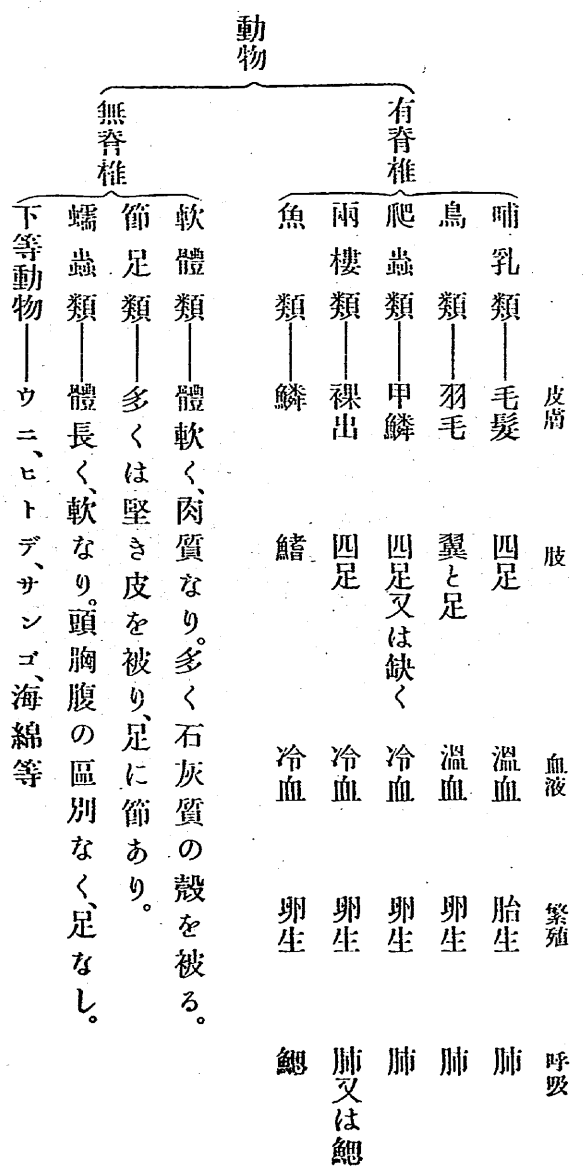 皮膚 肢 血液 繁殖 呼吸
動物
有脊椎
哺乳類――毛髮 四足 溫血 胎生 肺
鳥類――羽毛 翼と足 溫血 卵生 肺
爬蟲類――甲鱗 四足又は缺く 冷血 卵生 肺
兩棲類――裸出 四足 冷血 卵生 肺又は鰓
魚類――鱗 鰭 冷血 卵生 鰓
無脊椎
軟體類――體軟く、肉質なり。多く石灰質の殼を被る。
節足類――多くは堅き皮を被り、足に節あり。
蠕蟲類――體長く、軟なり。頭胸腹の區別なく、足なし。
下等動物――ウニ、ヒトデ、サンゴ、海綿等